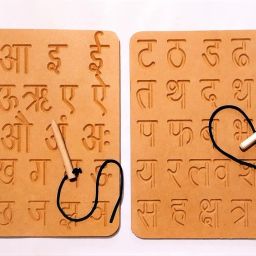 आ इ ई
ऊ ऋ ए ऐ
औ अं अः
ख ग
छ ज झ
ट ठ ड ढ
त थ द ध
प फ ब भ
य र ल व श
स ह क्ष त्र